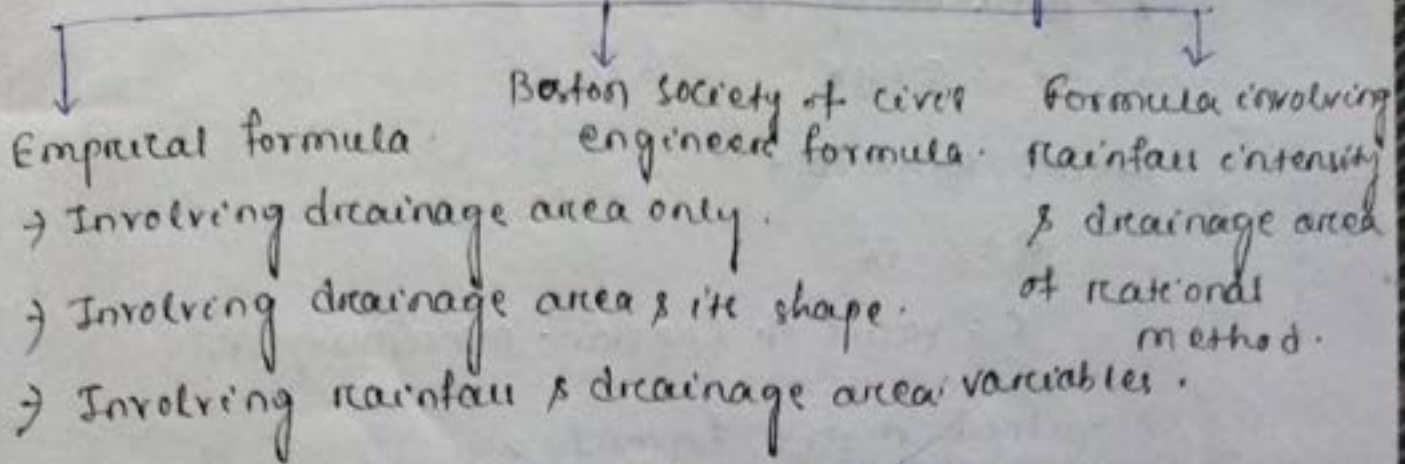 Emprical formula.
→ Involving drainage area only.
→ Involving drainage area & its shape.
→ Involving rainfall & drainage area variables.
Boston society of civil
engineers formula.
formula involving
rainfall intensity
& drainage area
of rational
method.